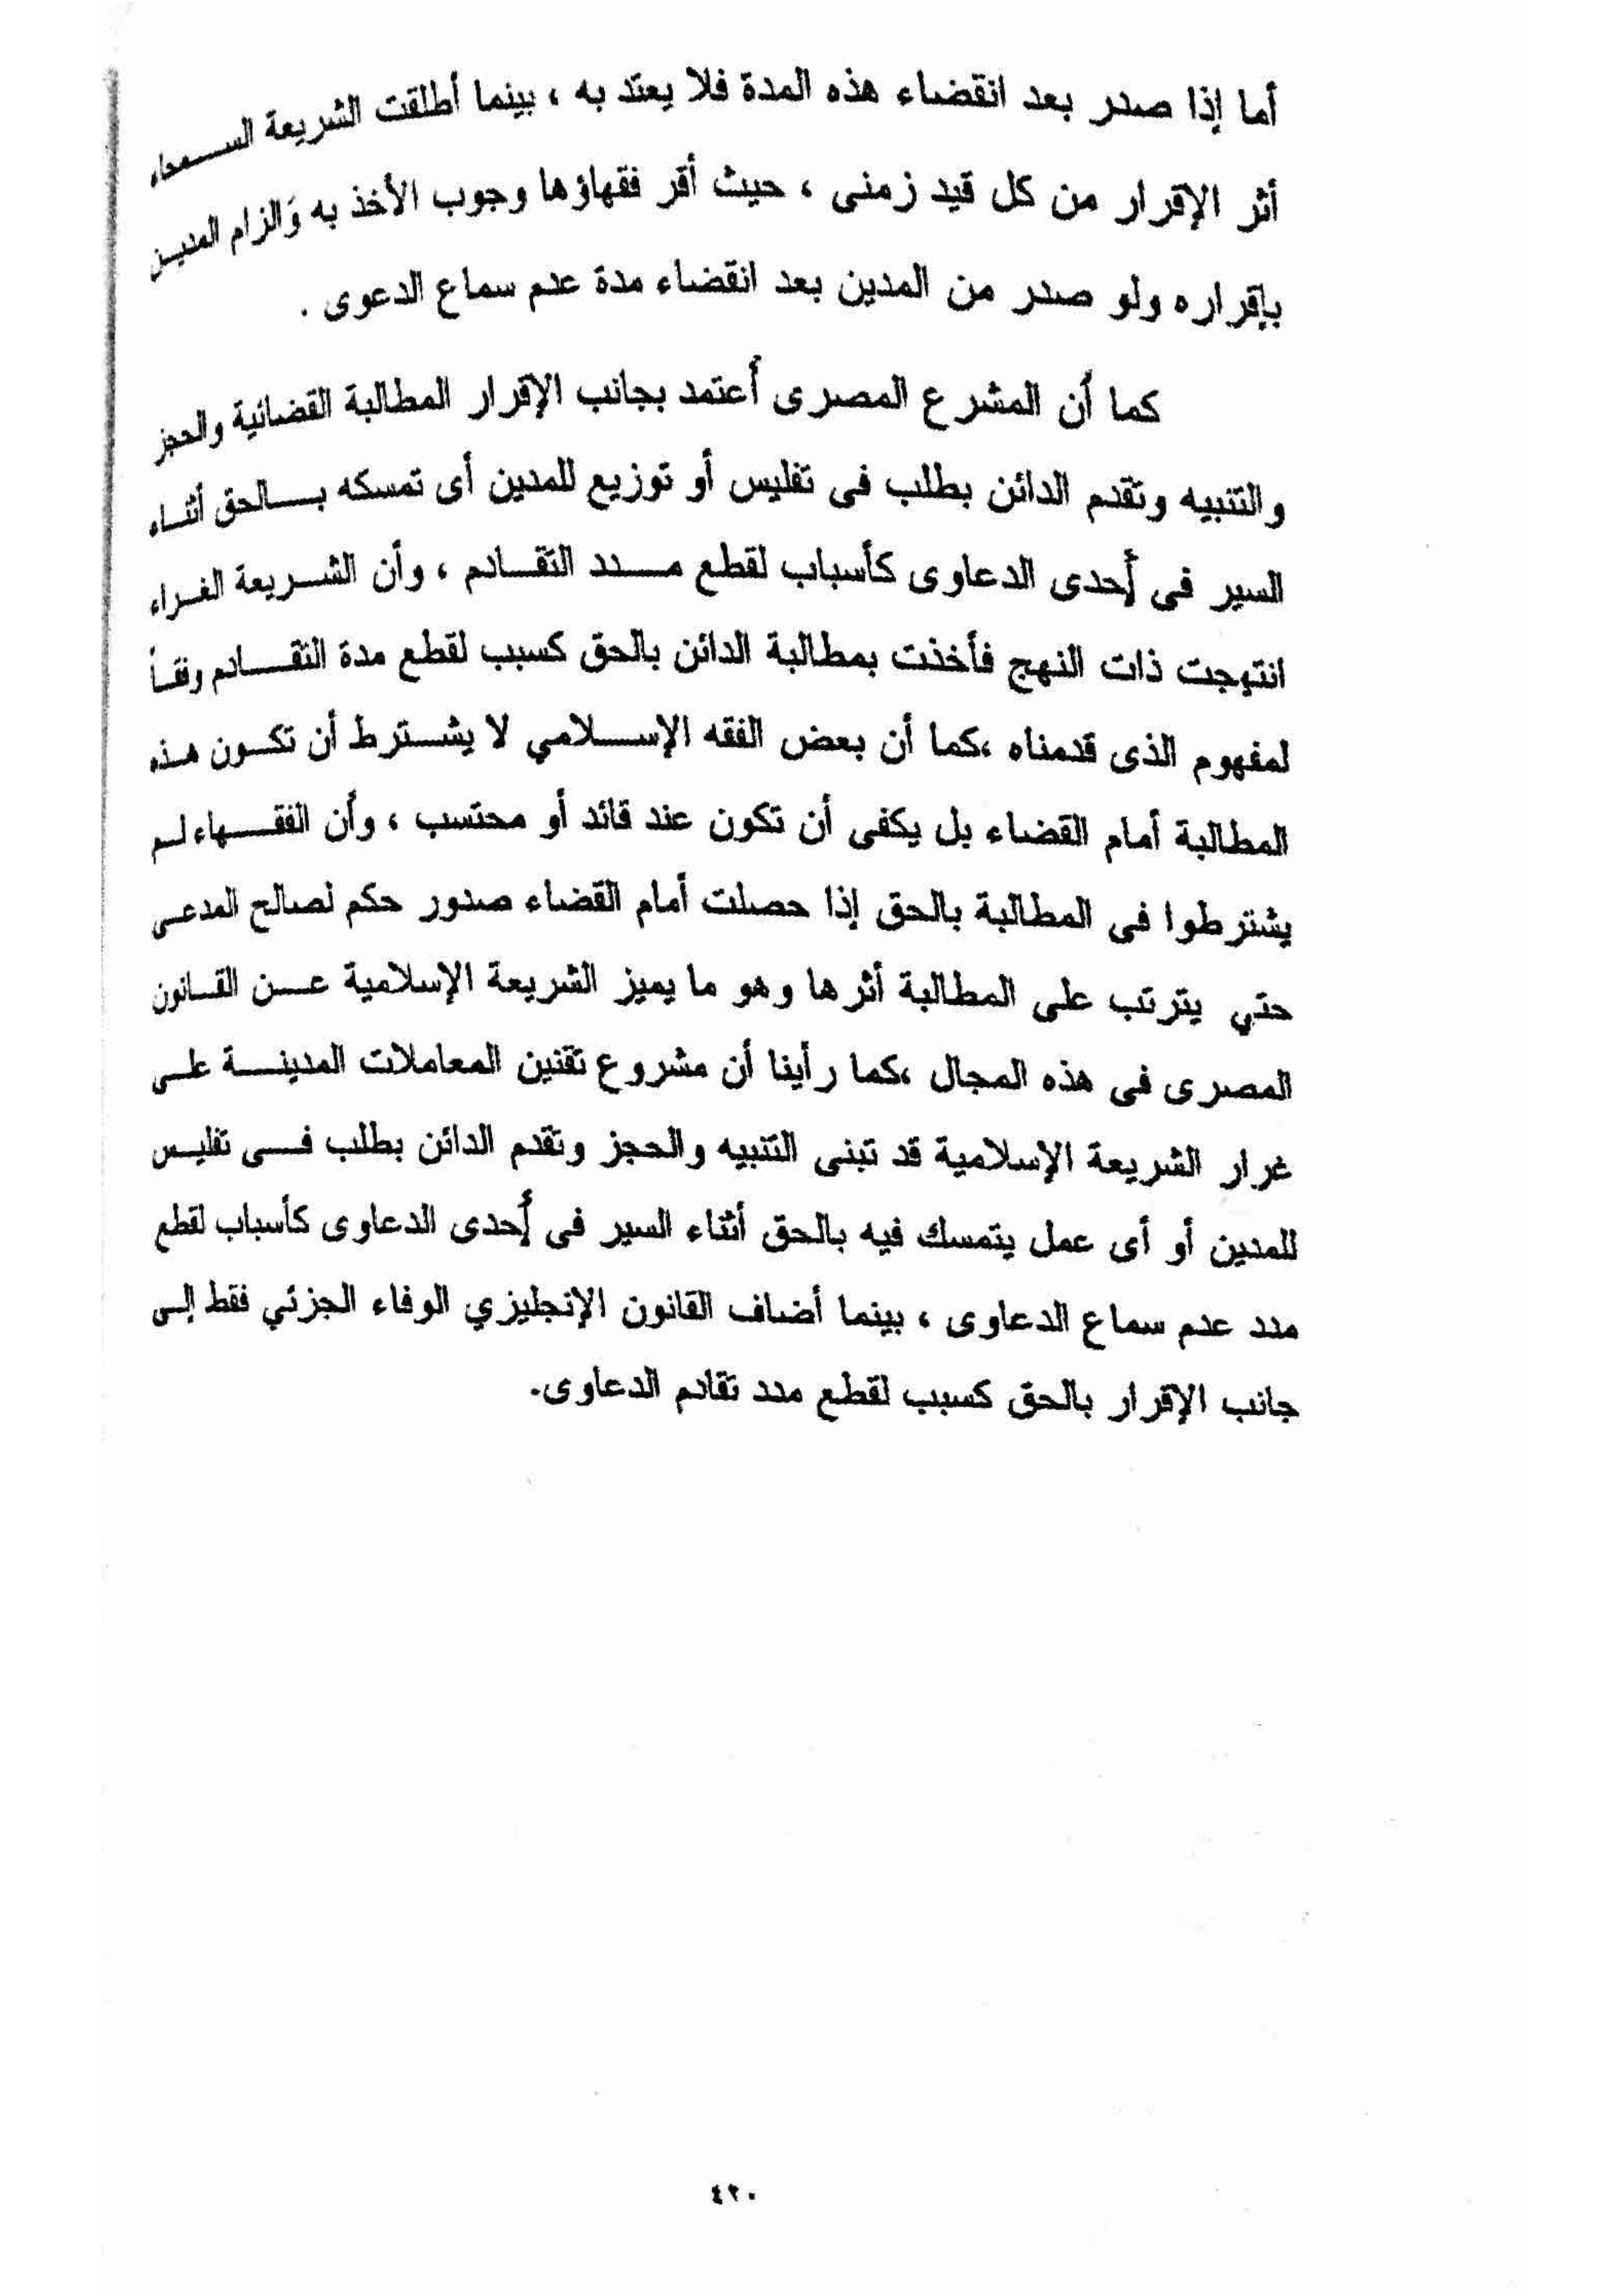 أما إذا صدر بعد انقضاء هذه المدة فلا يعتد به ، بينما أطلقت الشريعة السمحاء
أثر الإقرار من كل قيد زمنى ، حيث أقر فقهاؤها وجوب الأخذ به وَالزام المدين
بإقراره ولو صدر من المدين بعد انقضاء مدة عدم سماع الدعوى .
كما أن المشرع المصرى أعتمد بجانب الإقرار المطالبة القضائية والحجز
والتنبيه وتقدم الدائن بطلب فى تفليس أو توزيع للمدين أى تمسكه بالحق أثناء
السير فى أحدى الدعاوى كأسباب لقطع مدد التقادم ، وأن الشريعة الغراء
انتهجت ذات النهج فأخذت بمطالبة الدائن بالحق كسبب لقطع مدة التقادم وفقاً
لمفهوم الذى قدمناه ،كما أن بعض الفقه الإسلامي لا يشترط أن تكون هذه
المطالبة أمام القضاء بل يكفى أن تكون عند قائد أو محتسب ، وأن الفقهاء لم
يشترطوا فى المطالبة بالحق إذا حصلت أمام القضاء صدور حكم لصالح المدعى
حتي يترتب على المطالبة أثرها وهو ما يميز الشريعة الإسلامية عن القانون
المصرى فى هذه المجال ،كما رأينا أن مشروع تقنين المعاملات المدينة على
غرار الشريعة الإسلامية قد تبنى التنبيه والحجز وتقدم الدائن بطلب فى تفليس
للمدين أو أى عمل يتمسك فيه بالحق أثناء السير فى أحدى الدعاوى كأسباب لقطع
مدد عدم سماع الدعاوى ، بينما أضاف القانون الإنجليزي الوفاء الجزئي فقط إلى
جانب الإقرار بالحق كسبب لقطع مدد تقادم الدعاوى.
٤٢٠